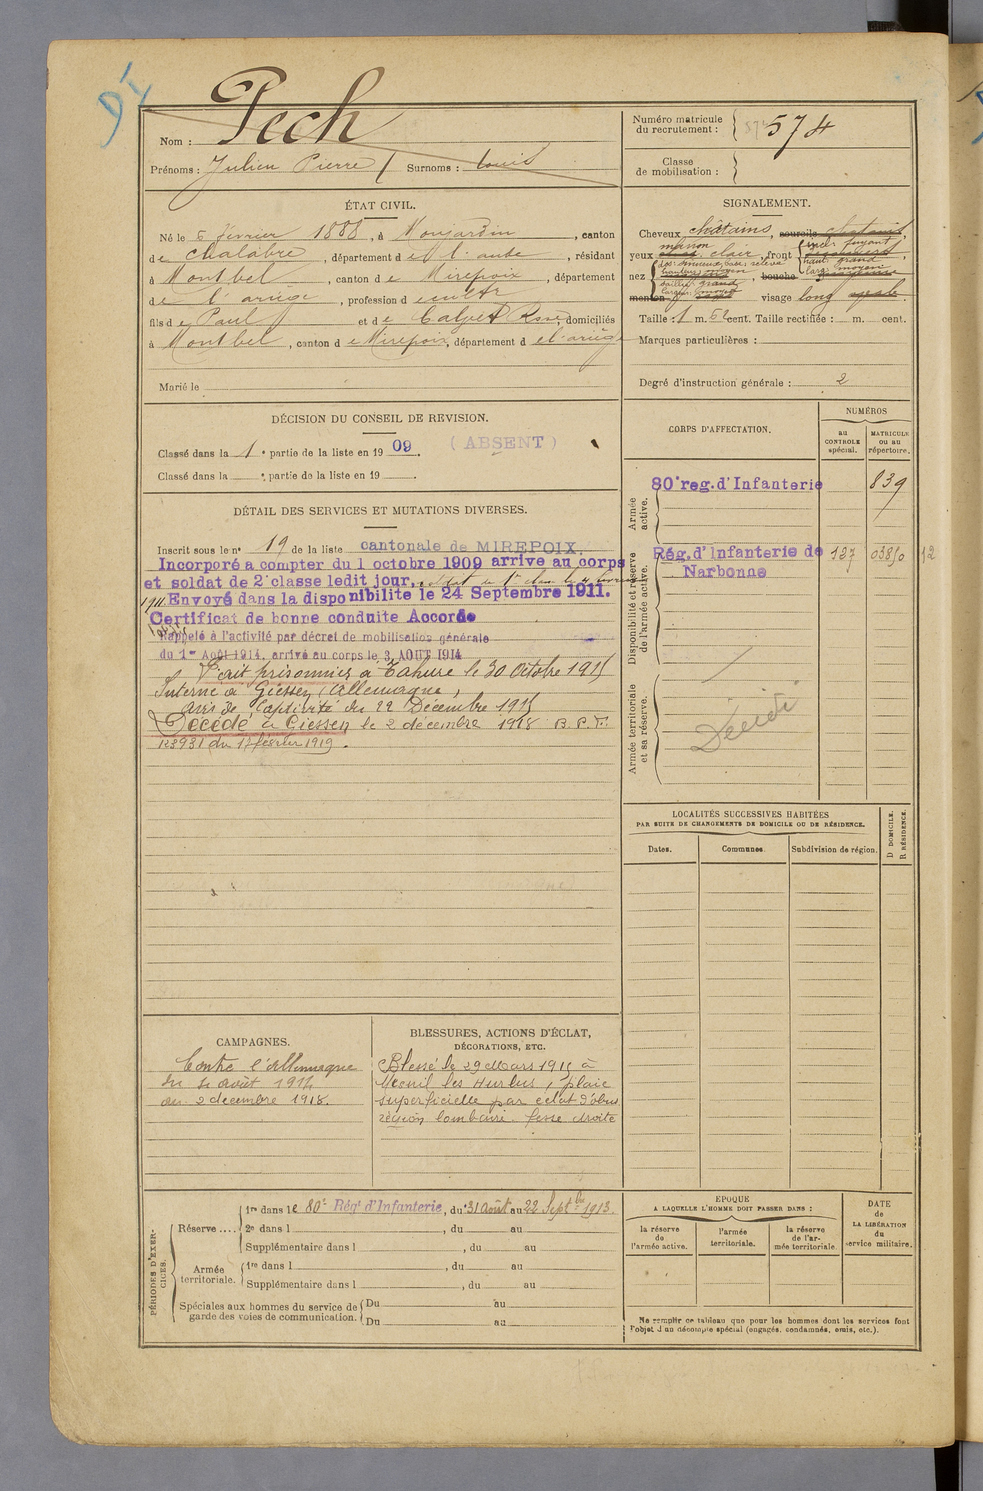 Nom : Pech
Prénoms : Julien Pierre / Surnoms : Louis
Numéro matricule
du recrutement : 574
Classe
de mobilisation :
ÉTAT CIVIL.
Né le 5 février 1888, à Monjardin, canton
de Chalabre, département de l'aude, résidant
à Montbel, canton de Mirepoix, département
de l'ariège, profession de cultr
fils de Paul et de Calpet Rose, domiciliés
à Montbel, canton de Mirepoix, département de l'ariège
Marié le
SIGNALEMENT.
Cheveux châtains, sourcils chatains
yeux marron clair, front incl: fuyant
haut: grand
larg: moyen
nez dos: sinueux, base: relevé
bouche
saillie: grand
largeur: moyen
menton visage long
Taille : 1 m. 52 cent. Taille rectifiée : m. cent.
Marques particulières :
Degré d'instruction générale : 2
DÉCISION DU CONSEIL DE REVISION.
Classé dans la 1e partie de la liste en 1909. (ABSENT)
Classé dans la e partie de la liste en 19
CORPS D'AFFECTATION.
NUMÉROS
au
CONTROLE
spécial.
MATRICULE
ou au
répertoire.
Armée
active.
80e reg. d'Infanterie 839
Disponibilité et réserve
de l'armée active.
Rég. d'Infanterie de 127 03850 12
Narbonne
Armée territoriale
et sa réserve.
Décédé
DÉTAIL DES SERVICES ET MUTATIONS DIVERSES.
Inscrit sous le n° 19 de la liste cantonale de MIREPOIX.
Incorporé a compter du 1 octobre 1909 arrivé au corps
et soldat de 2e classe ledit jour, soldat de 1re classe le
1911. Envoyé dans la disponibilite le 24 Septembre 1911.
Certificat de bonne conduite Accordé
Rappelé à l'activité par décret de mobilisation générale
du 1er Août 1914, arrivé au corps le 3 AOUT 1914
Fait prisonnier à Tahure le 30 Octobre 1915
Interné à Giessen (Allemagne,
avis de Captivité du 22 Décembre 1915
Décédé à Giessen le 2 décembre 1918 B.P.F.
R3931 du 17 février 1919.
LOCALITÉS SUCCESSIVES HABITÉES
PAR SUITE DE CHANGEMENTS DE DOMICILE OU DE RÉSIDENCE.
Dates. Communes. Subdivision de région. D DOMICILE. R RÉSIDENCE.
CAMPAGNES.
Contre l'Allemagne
du 4 août 1914
au 2 decembre 1918.
BLESSURES, ACTIONS D'ÉCLAT,
DÉCORATIONS, ETC.
Blessé le 29 Mars 1915 à
Mesnil les Hurlus, plaie
superficielle par éclat d'obus
région lombaire. fesse droite
PÉRIODES D'EXERCICES.
Réserve ....
1re dans le 80e Régt d'Infanterie, du 31 Août au 22 Septbre 1913.
2e dans l , du au
Supplémentaire dans l , du au
Armée
territoriale.
1re dans l , du au
Supplémentaire dans l , du au
Spéciales aux hommes du service de
garde des voies de communication.
Du au
Du au
EPOQUE
A LAQUELLE L'HOMME DOIT PASSER DANS :
la réserve
de
l'armée active.
l'armée
territoriale.
la réserve
de l'armée territoriale.
DATE
de
LA LIBÉRATION
du
service militaire.
Ne remplir ce tableau que pour les hommes dont les services font
l'objet d'un décompte spécial (engagés, condamnés, omis, etc.).